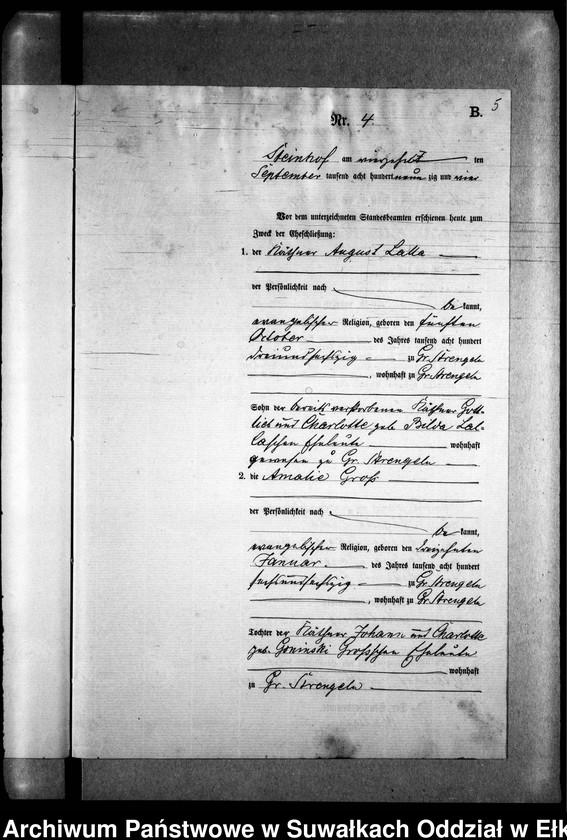 5
B.
Nr. 4.
Steinhof am vierzehnten
September tausend acht hundert neunzig und vier
Vor dem unterzeichneten Standesbeamten erschienen heute zum
Zweck der Eheschließung:
1. der Käthner August Lalla
der Persönlichkeit nach
bekannt,
evangelischer Religion, geboren den fünften
October des Jahres tausend acht hundert
dreiundsechzig zu Gr. Strengeln
, wohnhaft zu Gr. Strengeln
Sohn der bereits verstorbenen Käthner Gott-
lieb und Charlotte geb. Bilda Lal-
laschen Eheleute wohnhaft
gewesen zu Gr. Strengeln
2. die Amalie Groß
der Persönlichkeit nach
bekannt,
evangelischer Religion, geboren den dreizehnten
Januar des Jahres tausend acht hundert
sechsundsechzig zu Gr. Strengeln
, wohnhaft zu Gr. Strengeln
Tochter der Käthner Johann und Charlotte
geb. Goninski Großschen Eheleute
wohnhaft
zu Gr. Strengeln
Archiwum Państwowe w Suwałkach Oddział w Ełk